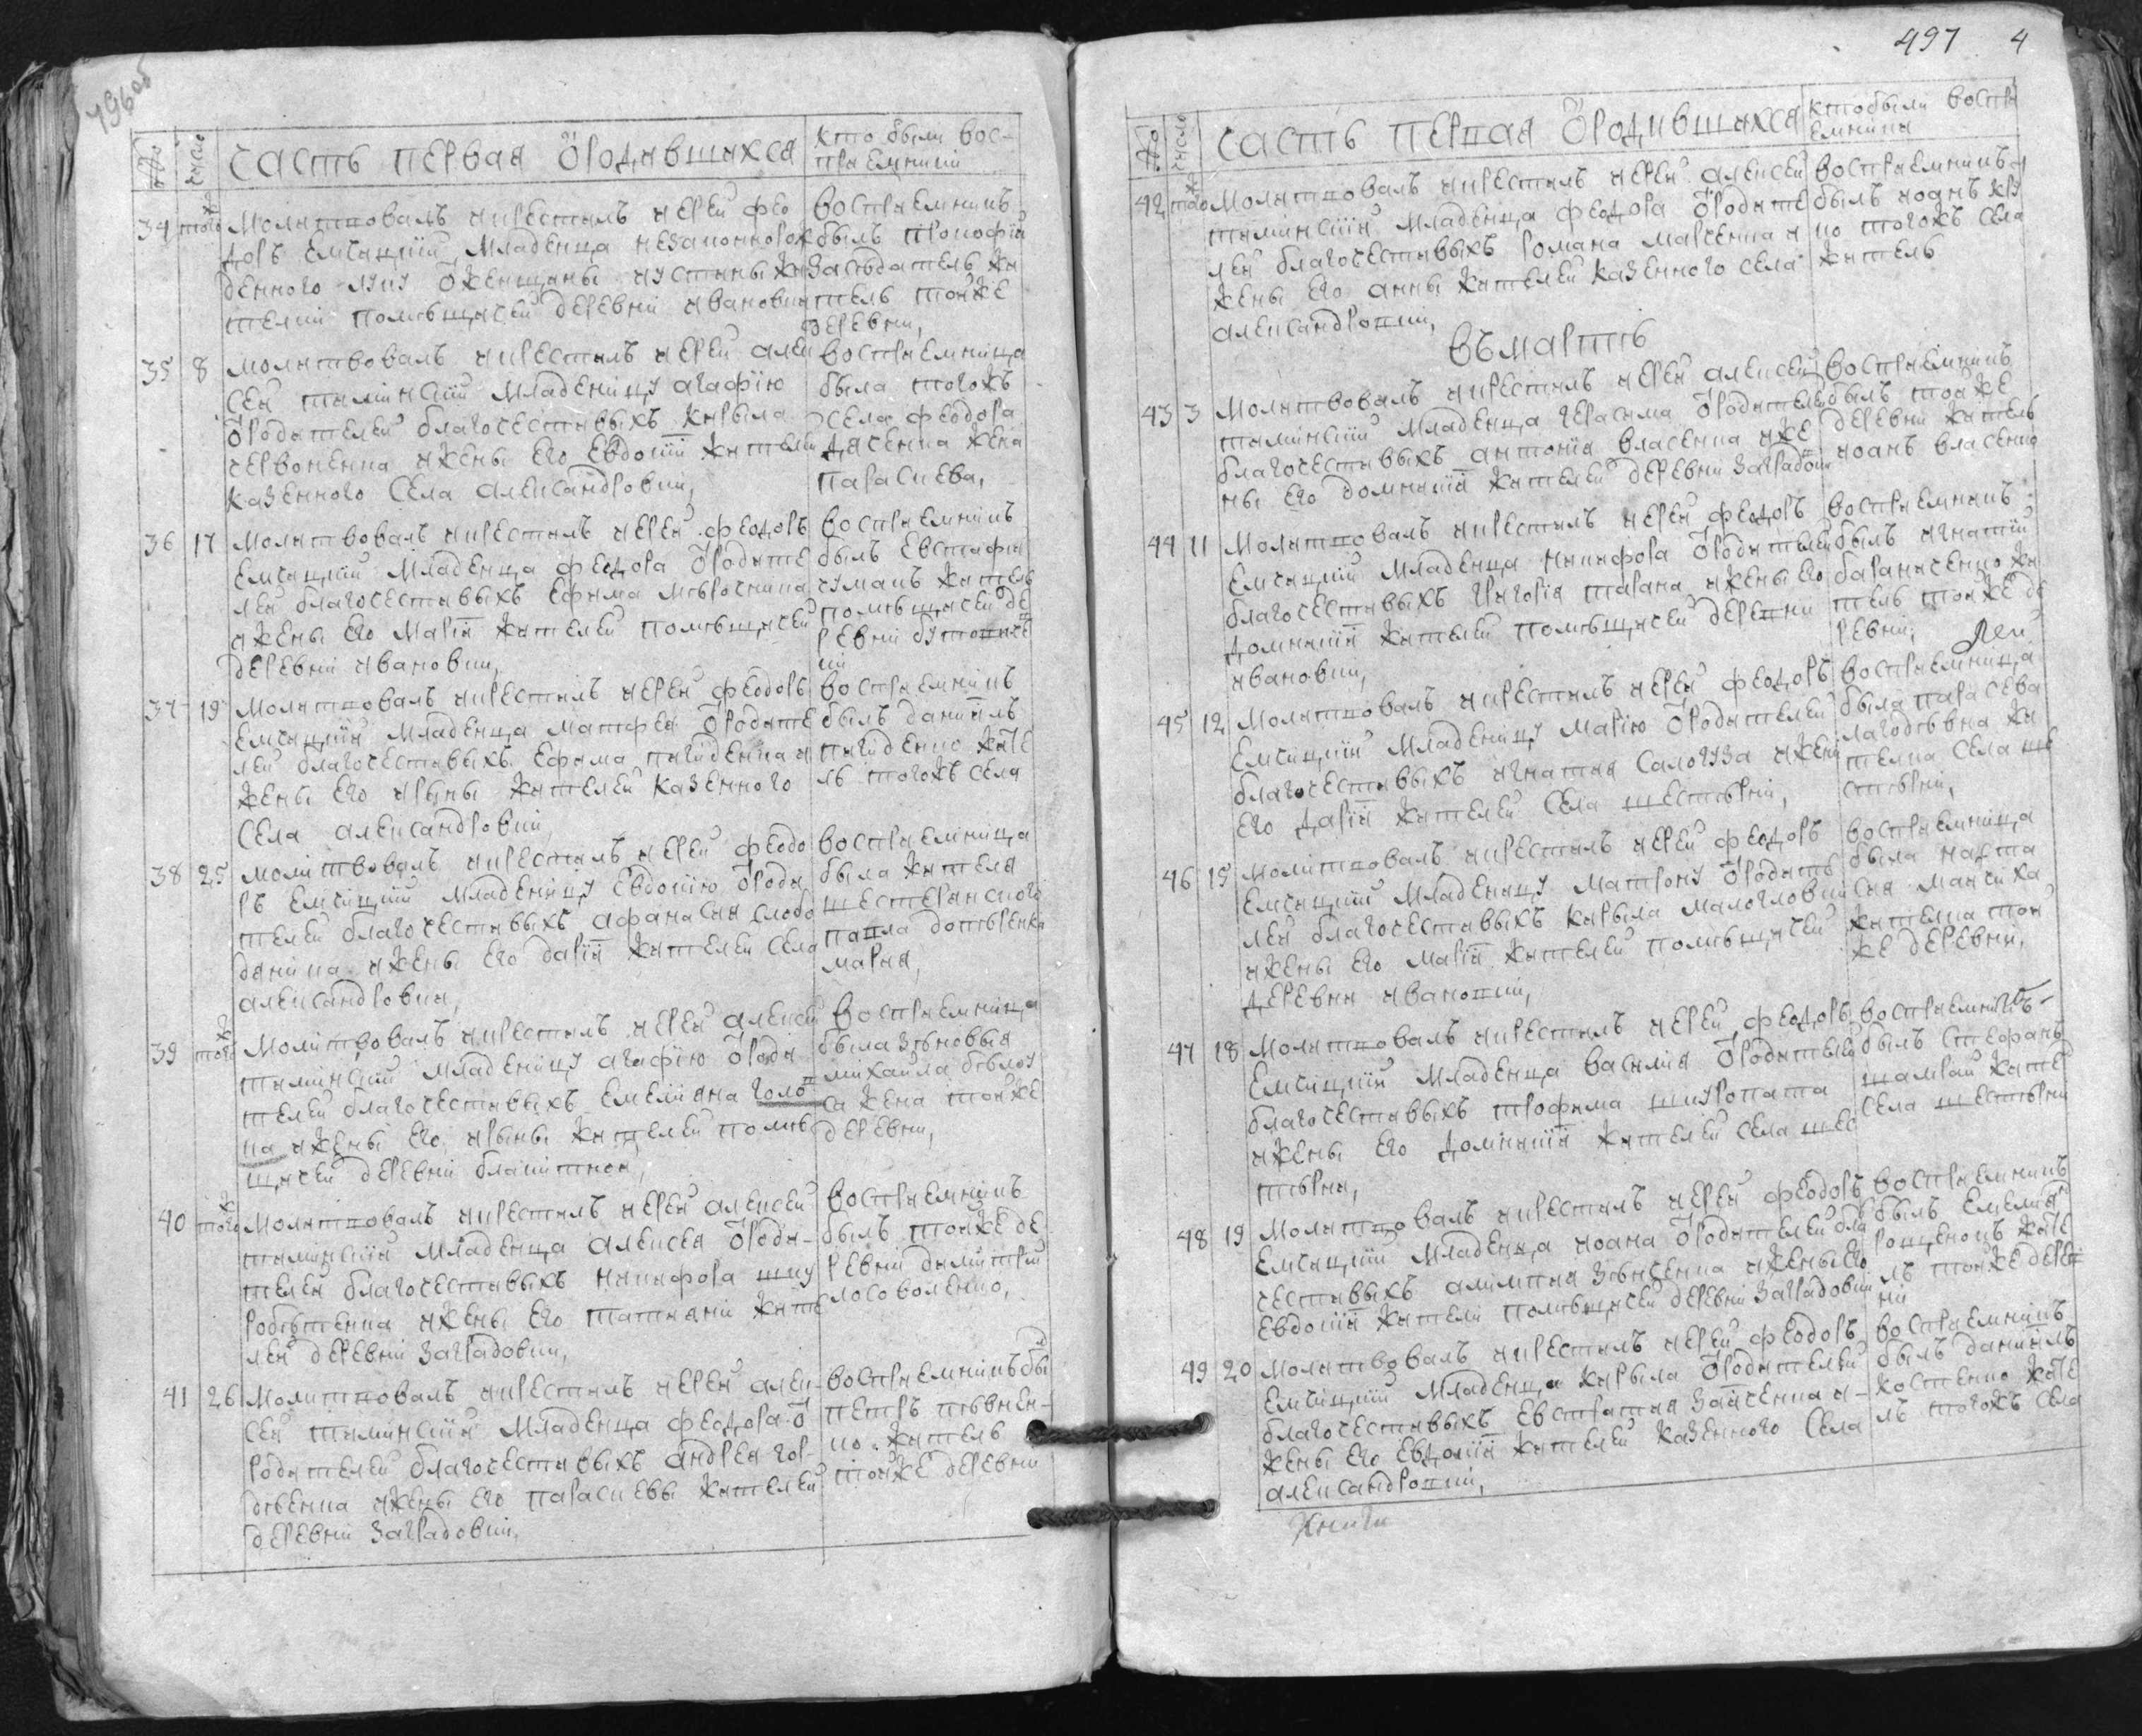 496 об
№ число Часть первая Ѿродившихся Кто были вос-
приемники
34 тогож Молитвовалъ икрестилъ иерей Фео
доръ Емчицкий младенца незаконнорож
денного Луку Ѿженщины Иустины жи
телки помѣщичей деревни Ивановки
Восприемникъ
былъ Прокофий
Засѣдатель жи
тель тойже
деревни,
35 8 Молитвовалъ икрестилъ иерей Алек
сей Таминский младеницу Агафию
Ѿродителей благочестивыхъ Кирыла
Червоненка ижены его Евдокии жителей
казенного села Александровки,
Восприемница
была тогожъ
села Феодора
Дяченка жена
Параскева,
36 17 Молитвовалъ икрестилъ иерей Феодоръ
Емчицкий младенца Феодора Ѿродите
лей благочестивыхъ Ефима Мѣрочника
ижены его Марии жителей помѣщичей
деревни Ивановки,
Восприемникъ
былъ Евстафий
Чумакъ житель
помѣщичей де
ревни
ки
37 19 Молитвовалъ икрестилъ иерей Феодоръ
Емчицкий младенца Матфея Ѿродите
лей благочестивыхъ Ефима и
жены его Ирины жителей казенного
села Александровки,
Восприемникъ
былъ Даниилъ
жите
ль тогожъ села
38 25 Молитвовалъ икрестилъ иерей Феодо
ръ Емчицкий младеницу Евдокию Ѿроди
телей благочестивыхъ Афанасия Слобо
дяника ижены его Дарии жителей села
Александровки,
Восприемница
была жителя
Шестерянского
Павла Дотѣренка
Мария,
39 тогож Молитвовалъ икрестилъ иерей Алексей
Таминский младеницу Агафию Ѿроди
телей благочестивыхъ Емелияна Голов
ка ижены его Ирины жителей помѣ
щичей деревни Блакитной,
Восприемница
была Зѣновия
Михаила Бѣлоу
са жена тойже
деревни,
40 тогож Молитвовалъ икрестилъ иерей Алексей
Таминский младенца Алексея Ѿроди-
телей благочестивыхъ Никифора Шку
робѣтенка ижены его Татияни жите
лей деревни Заградовки,
Восприемникъ
былъ тойже де
ревни Димитрий
Лосоволенко,
41 26 Молитвовалъ икрестилъ иерей Алек-
сей Таминский младенца Феодора Ѿ
родителей благочестивыхъ Андрея Гор-
дѣенка ижены его Параскевы жителей
деревни Заградовки,
Восприемникъ бы
Петръ Пѣвнен-
ко житель
тойже деревни
497 4
№ число Часть первая Ѿродившихся Кто были воспри
емники
42 тогож Молитвовалъ икрестилъ иерей Алексей
Таминский младенца Феодора Ѿродите
лей благочестивыхъ Романа Марченка и
жены его Анны жителей казенного села
Александровки,
Восприемникъ
былъ Иоанъ
ко тогожъ села
житель
Въ мартѣ
43 3 Молитвовалъ икрестилъ иерей Алексей
Таминский младенца Герасима Ѿродителей
благочестивыхъ Антония Власенка иже
ны его Домникии жителей деревни Заградовки
Восприемникъ
былъ тойже
деревни житель
Иоанъ Власенко
44 11 Молитвовалъ икрестилъ иерей Феодоръ
Емчицкий младенца Никифора Ѿродителей
благочестивыхъ Григория Тарана ижены его
Домникии жителей помѣщичей деревни
Ивановки,
Восприемникъ
былъ Игнатий
Баранниченко жи
тель тойже де
ревни,
45 12 Молитвовалъ икрестилъ иерей Феодоръ
Емчицкий младеницу Марию Ѿродителей
благочестивыхъ Игнатия Салогуза ижени
его Дарии жителей села Шестѣрни,
Восприемница
была Параскева
жи
телка села Ше
стѣрни,
46 15 Молитвовалъ икрестилъ иерей Феодоръ
Емчицкий младеницу Матрону Ѿродите
лей благочестивыхъ Кирыла Малоголовки
ижены его Марии жителей помѣщичей
деревни Ивановки,
Восприемница
была Наста
сия Манчиха
жителка той
же деревни,
47 18 Молитвовалъ икрестилъ иерей Феодоръ
Емчицкий младенца Василия Ѿродителей
благочестивыхъ Трофима Шкуропата
ижены его Домникии жителей села Шес
тѣрни,
Восприемникъ
былъ Стефанъ
Шамрай жите
села Шестѣрни
48 19 Молитвовалъ икрестилъ иерей Феодоръ
Емчицкий младенца Иоана Ѿродителей бла
честивыхъ Алимпия Зѣнченка ижены его
Евдокии жители помѣщичей деревни Заградовки
Восприемникъ
былъ Емелиян
жите
ль тойже дерев
ни
49 20 Молитвовалъ икрестилъ иерей Феодоръ
Емчицкий младенца Кирыла Ѿродителей
благочестивыхъ Евстратия Заиченка и-
жены его Евдокии жителей казенного села
Александровки,
Восприемникъ
былъ Даниилъ
Костенко жите
ль тогожъ села
Книги